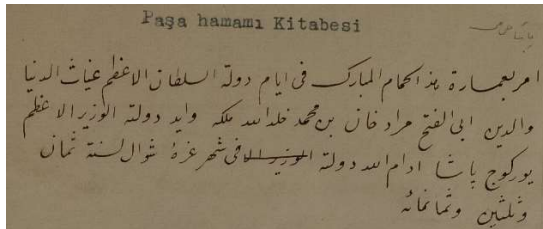 Paşa hamamı Kitabesi
پاشا حمامی
امر بعمارة هذا الحمام المبارك فى ايام دولة السلطان الاعظم غياث الدنيا
والدين ابى الفتح مراد خان بن محمد خلد الله ملكه وايد دولته الوزير الاعظم
يوركوج پاشا ادام الله دولته الوزير الا فى شهر غرة شوال لسنة ثمان
وثلثين وثمانمائه